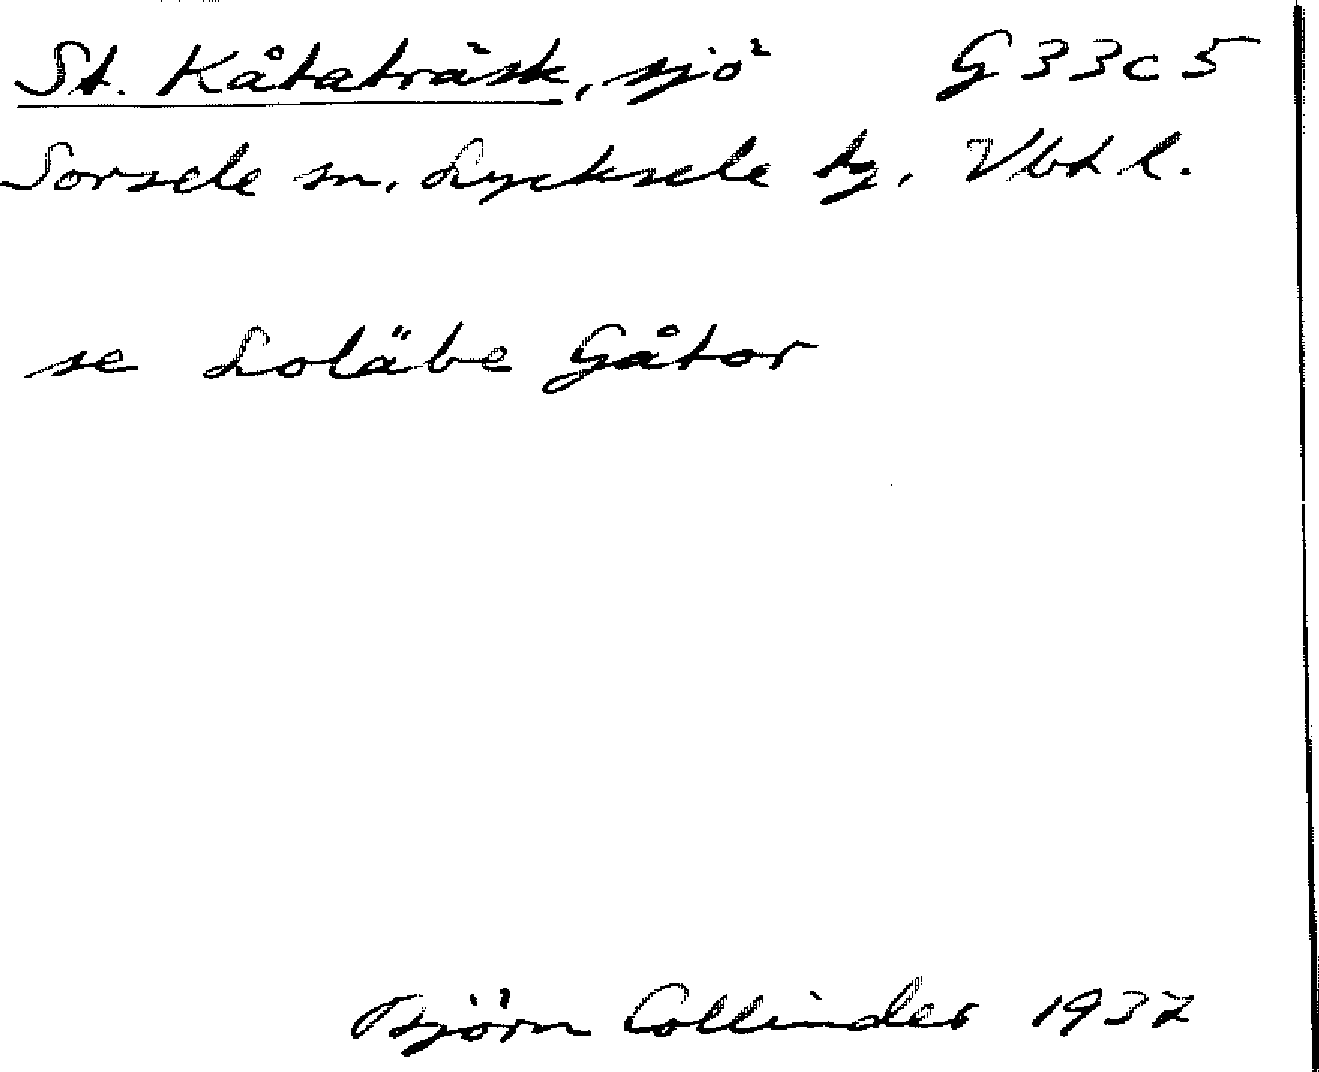 St. Kåtaträsk, sjö G 33 c 5
Sorsele sn. Lycksele tg. Vbtl.
se Loläbe Gåtor
Björn Collinder 1937